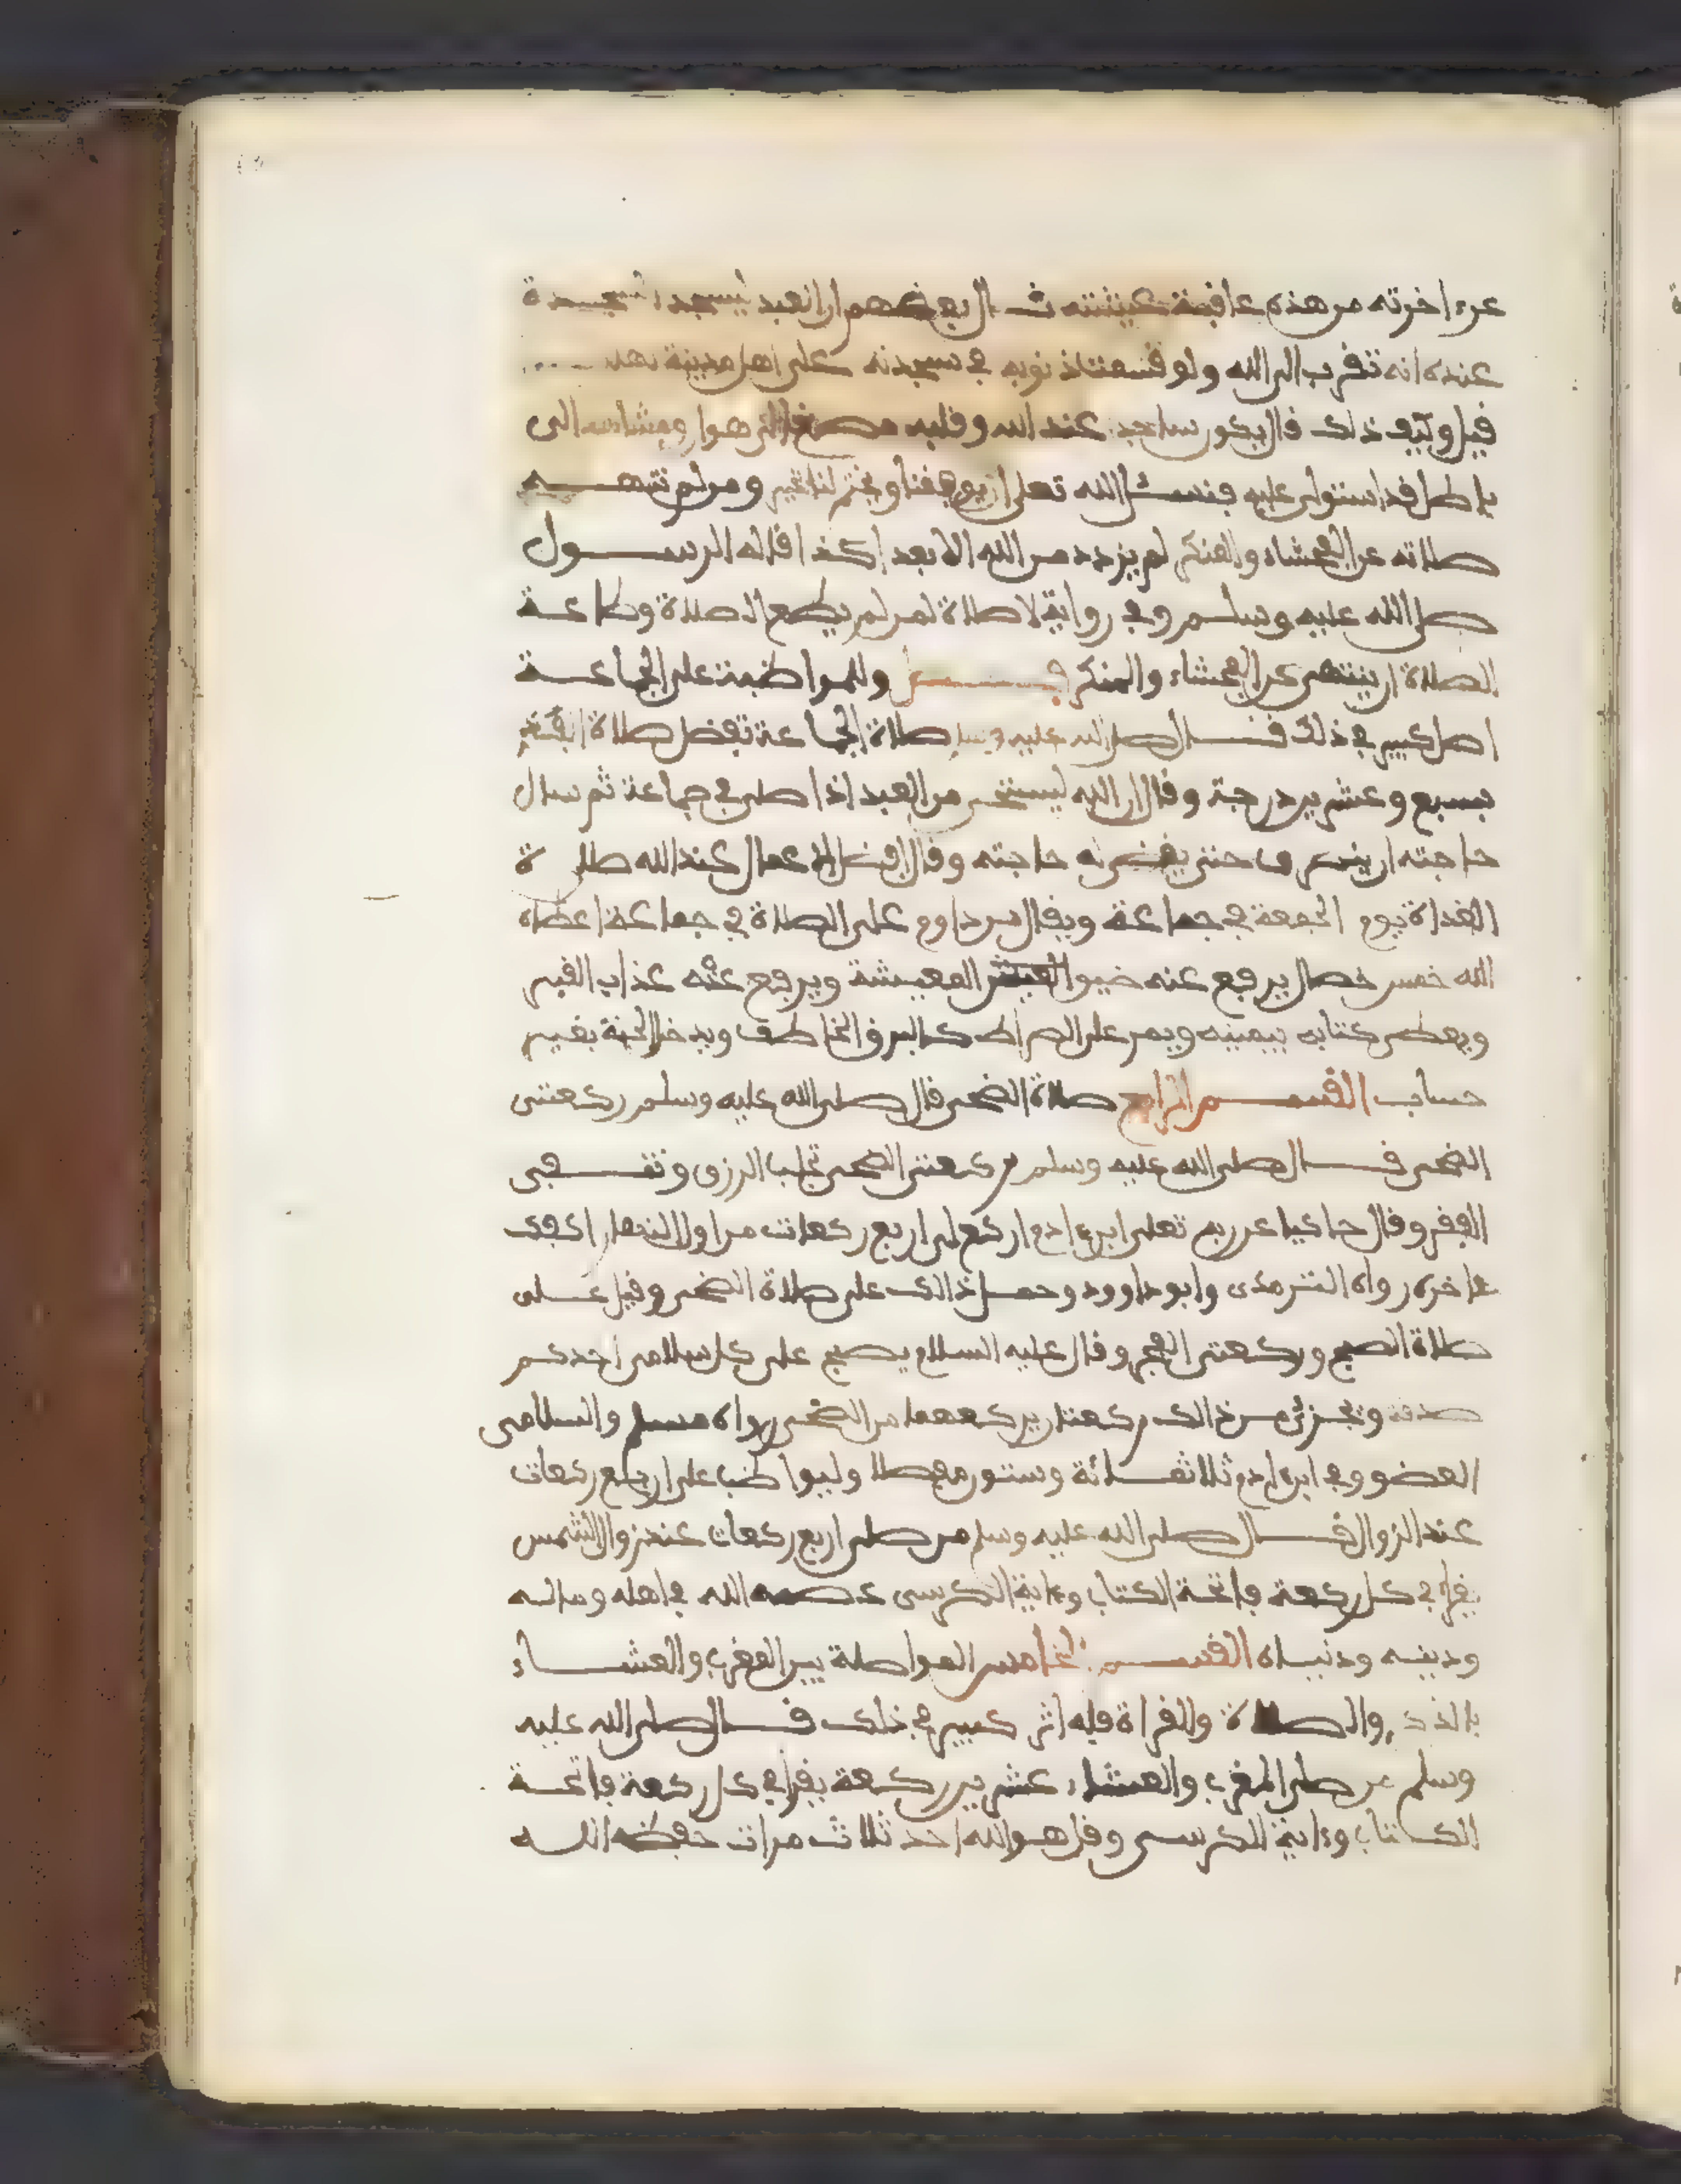 عن اخرته من هذه عافية عيشته قال بعضهم ان العبد ليسجد السجدة
عنده انه تقرب الى الله ولو قسمت ذنوبه في سجدته على اهل مدينة
قيل وكيف ذلك قال يكون ساجد عند الله وقلبه مصغ الى هوا ومشاهد الى
باطل قد استولى عليه فنسئل الله تعلى ان يوفقنا ويختم لنا بخير ومن لم تنهه
صلاته عن الفحشاء والمنكر لم يزدد من الله الا بعدا كذا قاله الرسول
صلى الله عليه وسلم وفي رواية لا صلاة لمن لم يطع الصلاة وطاعة
الصلاة ان ينتهي عن الفحشاء والمنكر وللمواظبة على الجماعة
اصل كبير في ذلك قال صلى الله عليه وسلم صلاة الجماعة تفضل صلاة الفذ
بسبع وعشرين درجة وقال ان الله ليستحي من العبد اذا صلى في جماعة ثم سال
حاجته ان ينصرف حتى يقضى له حاجته وقال افضل الاعمال عند الله صلاة
الغداة يوم الجمعة في جماعة ويقال من داوم على الصلاة في جماعة اعطاه
الله خمس خصال يرفع عنه ضيق العيش المعيشة ويرفع عنه عذاب القبر
ويعطى كتابه بيمينه ويمر على الصراط كالبرق الخاطف ويدخل الجنة بغير
حساب القسم الرابع صلاة الضحى قال صلى الله عليه وسلم ركعتى
الضحى قال صلى الله عليه وسلم ركعتى الضحى تجلب الرزق وتنفى
الفقر وقال حاكيا عن ربه تعلى ابن ءادم اركع لى اربع ركعات من اول النهار اكفك
ءاخره رواه الترمذى وابو داوود وحمل ذالك على صلاة الضحى وقيل على
صلاة الصبح وركعتى الفجر وقال عليه السلام يصبح على كل سلامى احدكم
صدقة وتجزئ من ذالك ركعتان يركعهما من الضحى رواه مسلم والسلامى
العضو وفي ابن ءادم ثلاثمائة وستون مفصلا وليواظب على اربع ركعات
عند الزوال قال صلى الله عليه وسلم من صلى اربع ركعات عند زوال الشمس
يقرا في كل ركعة فاتحة الكتاب وءاية الكرسى عصمه الله في اهله وماله
ودينه ودنياه القسم الخامس المواصلة بين المغرب والعشاء
بالذكر والصلاة والقراة فله اثر كبير في ذلك قال صلى الله عليه
وسلم من صلى المغرب والعشاء عشرين ركعة يقرا في كل ركعة فاتحة
الكتاب وءاية الكرسى وقل هو الله احد ثلاث مرات حفظه الله